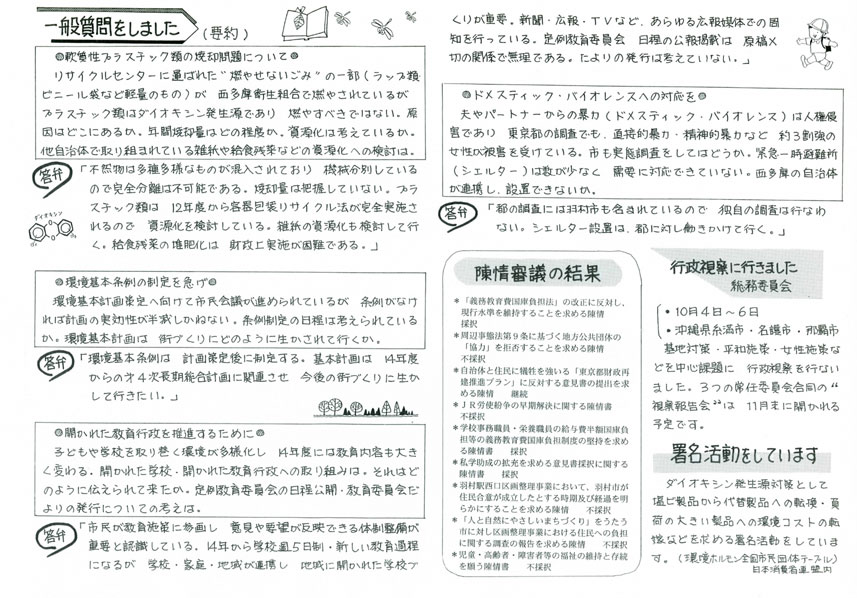 一般質問をしました
(要約)
◎軟質性プラスチック類の焼却問題について◎
リサイクルセンターに運ばれた“燃やせないごみ”の一部(ラップ類・
ビニール袋など軽量のもの)が 西多摩衛生組合で燃やされているが
プラスチック類はダイオキシン発生源であり 燃やすべきではない。原
因はどこにあるか。年間焼却量はどの程度か。資源化は考えているか。
他自治体で取り組まれている雑紙や給食残菜などの資源化への検討は。
答弁
「不燃物は多種多様なものが混入されており 機械分別している
ので完全分離は不可能である。焼却量は把握していない。プラ
スチック類は 12年度から容器包装リサイクル法が完全実施さ
れるので 資源化を検討している。雑紙の資源化も検討して行
く。給食残菜の堆肥化は 財政上実施が困難である。」
ダイオキシン
◎環境基本条例の制定を急げ◎
環境基本計画策定へ向けて市民会議が進められているが 条例がなけ
れば計画の実効性が半減しかねない。条例制定の日程は考えられている
か。環境基本計画は 街づくりにどのように生かされて行くか。
答弁
「環境基本条例は 計画策定後に制定する。基本計画は 14年度
からの第4次長期総合計画に関連させ 今後の街づくりに生か
して行きたい。」
◎開かれた教育行政を推進するために◎
子どもや学校を取り巻く環境が多様化し 14年度には教育内容も大き
く変わる。開かれた学校・開かれた教育行政への取り組みは。それはど
のように伝えられて来たか。定例教育委員会の日程公開・教育委員会だ
よりの発行についての考えは。
答弁
「市民が教育施策に参画し 意見や要望が反映できる体制整備が
重要と認識している。14年から学校週5日制・新しい教育過程
になるが 学校・家庭・地域が連携し 地域に開かれた学校づ
くりが重要。新聞・広報・TVなど、あらゆる広報媒体での周
知を行っている。定例教育委員会 日程の公報掲載は 原稿〆
切の関係で無理である。たよりの発行は考えていない。」
◎ドメスティック・バイオレンスへの対応を◎
夫やパートナーからの暴力(ドメスティック・バイオレンス)は人権侵
害であり 東京都の調査でも、直接的暴力・精神的暴力など 約3割強の
女性が被害を受けている。市も実態調査をしてはどうか。緊急一時避難所
(シェルター)は数が少なく 需要に対応できていない。西多摩の自治体
が連携し、設置できないか。
答弁
「都の調査には羽村市も含まれているので 独自の調査は行なわ
ない。シェルター設置は、都に対し働きかけて行く。」
陳情審議の結果
*「義務教育費国庫負担法」の改正に反対し、
現行水準を維持することを求める陳情
採択
*周辺事態法第9条に基づく地方公共団体の
「協力」を拒否することを求める陳情
不採択
*自治体と住民に犠牲を強いる「東京都財政再
建推進プラン」に反対する意見書の提出を求
める陳情 継続
*JR労使紛争の早期解決に関する陳情書
不採択
*学校事務職員・栄養職員の給与費半額国庫負
担等の義務教育費国庫負担制度の堅持を求め
る陳情書 採択
*私学助成の拡充を求める意見書採択に関する
陳情書 採択
*羽村駅西口区画整理事業において、羽村市が
住民合意が成立したとする時期及び経過を明
らかにすることを求める陳情 不採択
*「人と自然にやさしいまちづくり」をうたう
市に対し区画整理事業における住民への負担
に関する調査の報告を求める陳情 不採択
*児童・高齢者・障害者等の福祉の維持と存続
を願う陳情書 不採択
行政視察に行きました
総務委員会
•10月4日~6日
•沖縄県糸満市・名護市・那覇市
基地対策・平和施策・女性施策な
どを中心課題に 行政視察を行ない
ました。3つの常任委員会合同の“
視察報告会”は 11月末に開かれる
予定です。
署名活動をしています
ダイオキシン発生源対策として
塩ビ製品から代替製品への転換・負
荷の大きい製品への環境コストの転
嫁などを求める署名活動をしていま
す。(環境ホルモン全国市民団体テーブル)
日本消費者連盟内